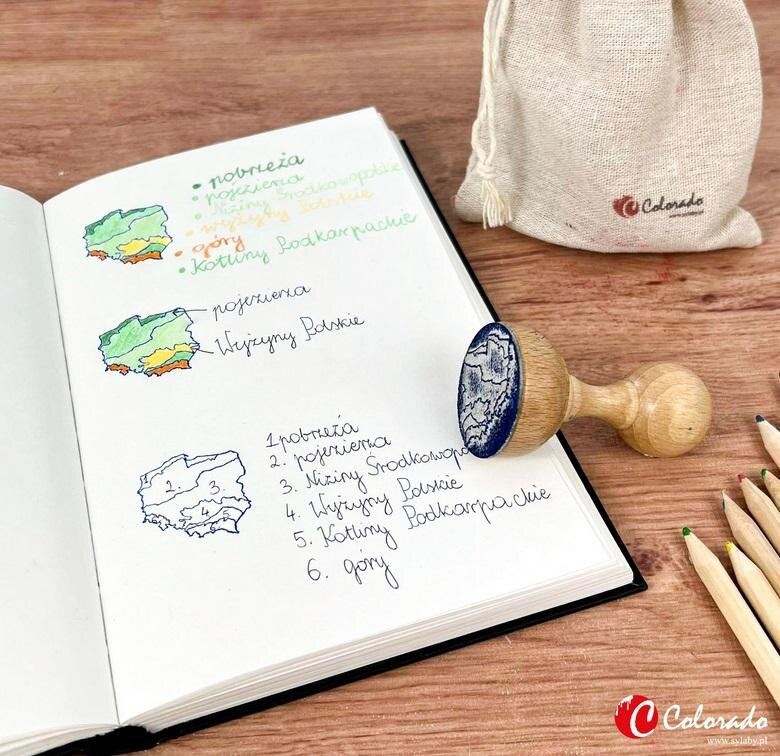 • pobrzeża
• pojezierza
• Niziny Środkowopolskie
• wyżyny Polskie
• góry
• Kotliny Podkarpackie
pojezierza
Wyżyny Polskie
1 pobrzeża
2. pojezierza
3. Niziny Środkowopo
4. Wyżyny Polskie
5. Kotliny Podkarpackie
6. góry
2. 3.
4 5
6
Colorado
www.sylaby.pl
C Colorado
www.sylaby.pl